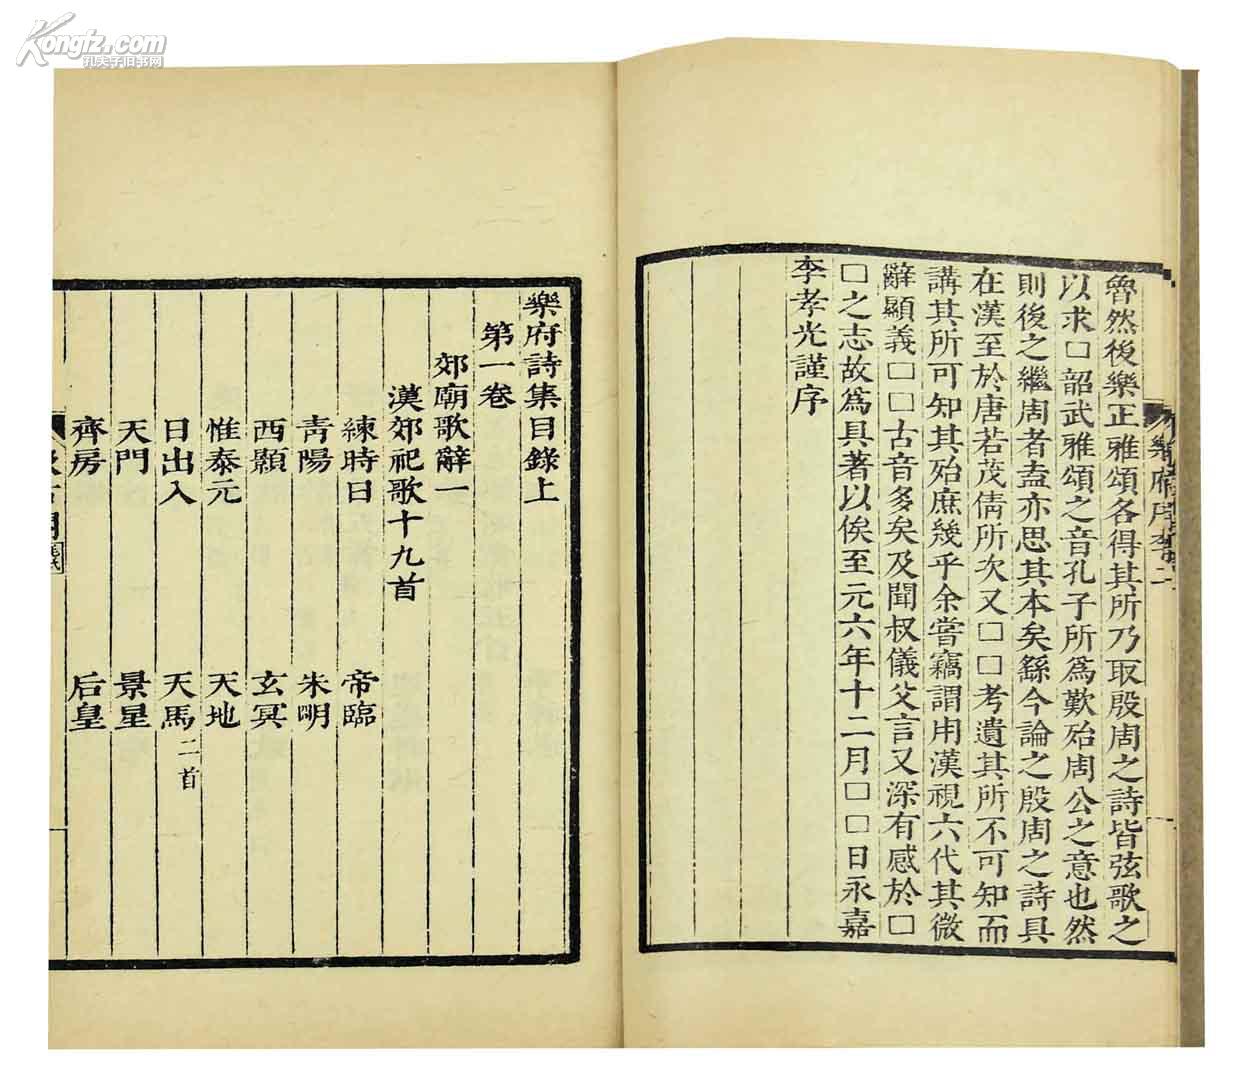 Kongfz.com
孔夫子旧书网
樂府序李二
魯然後樂正雅頌各得其所乃取殷周之詩皆弦歌之
以求□韶武雅頌之音孔子所爲歎殆周公之意也然
則後之繼周者盍亦思其本矣繇今論之殷周之詩具
在漢至於唐若茂倩所次又□□考遺其所不可知而
講其所可知其殆庶幾乎余嘗竊謂用漢視六代其微
辭顯義□□古音多矣及聞叔儀父言又深有感於□
□之志故爲具著以俟至元六年十二月□□日永嘉
李孝光謹序
樂府詩集目錄上
第一卷
郊廟歌辭一
漢郊祀歌十九首
練時日 帝臨
青陽 朱明
西顥 玄冥
惟泰元 天地
日出入 天馬二首
天門 景星
齊房 后皇